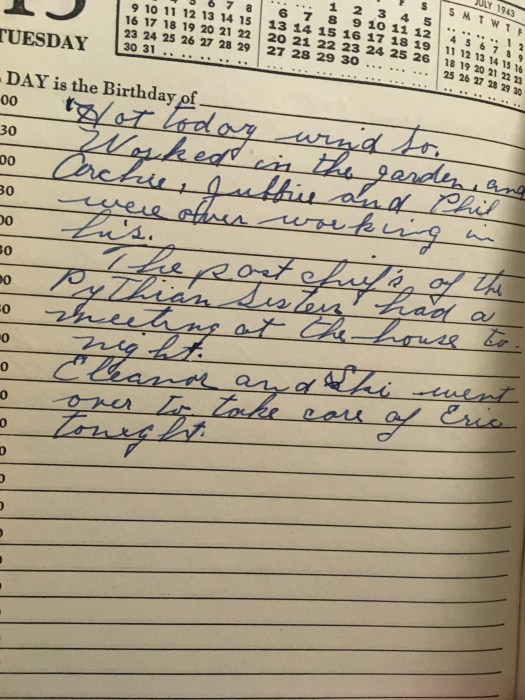 15
TUESDAY
4 5 6 7 8
9 10 11 12 13 14 15
16 17 18 19 20 21 22
23 24 25 26 27 28 29
30 31 . . . . .
F S
. . 1 2 3 4 5
6 7 8 9 10 11 12
13 14 15 16 17 18 19
20 21 22 23 24 25 26
27 28 29 30 . . .
JULY 1943
S M T W T F
. . . . 1 2
4 5 6 7 8 9
11 12 13 14 15 16
18 19 20 21 22 23
25 26 27 28 29 30
DAY is the Birthday of
Hot today wind So,
Worked in the garden, and
Archie, Jubbie and Phil
were over working in
his.
The past chief's of the
Pythian Sisters had a
meeting at the house to-
night.
Eleanor and Ski went
over to take care of Eric
tonight.
00
30
00
30
00
30
00
30
00